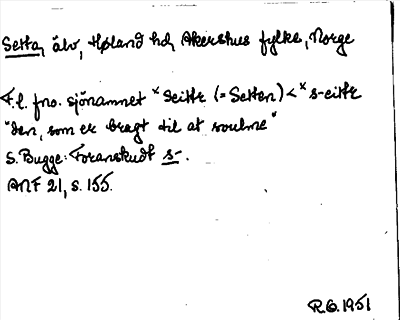 Setta, älv, Høland hd, Akershus fylke, Norge
F.l. fno. sjönamnet *Seittr (= Setten) < *s-eittr
"den, som er bragt til at svulme"
S. Bugge: Foranskudt s-.
ANF 21, s. 155.
R.O. 1951